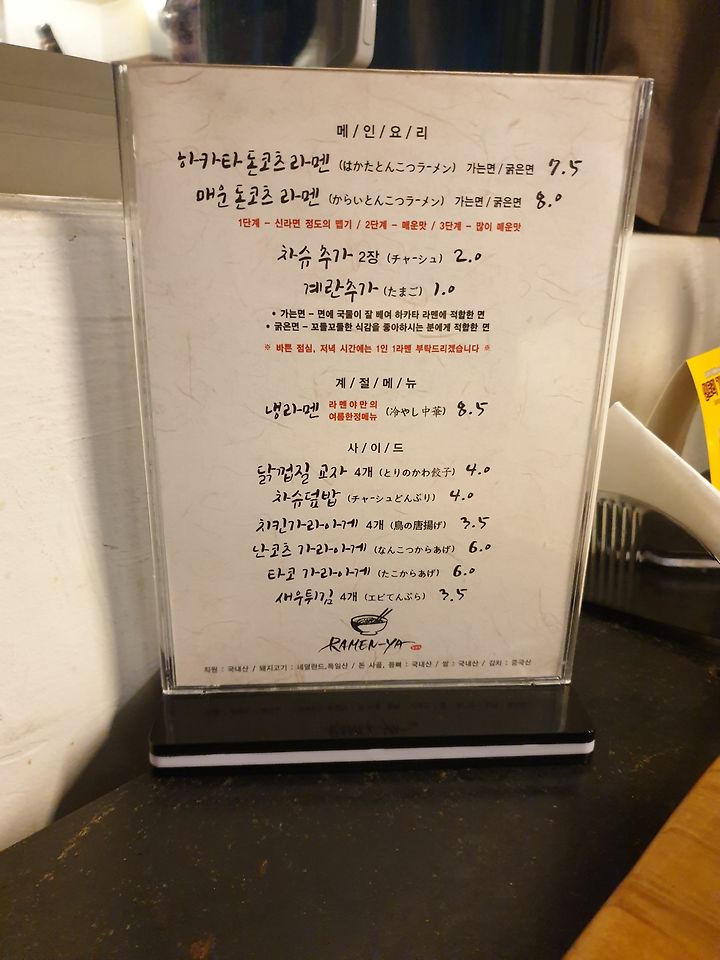 메/인/요/리
하카타 돈코츠 라멘 (はかたとんこつラーメン) 가는면/굵은면 7.5
매운 돈코츠 라멘 (からいとんこつラーメン) 가는면/굵은면 8.0
1단계 - 신라면 정도의 맵기 / 2단계 - 매운맛 / 3단계 - 많이 매운맛
차슈 추가 2장 (チャーシュ) 2.0
계란추가 (たまご) 1.0
• 가는면 - 면에 국물이 잘 베여 하카타 라멘에 적합한 면
• 굵은면 - 꼬들꼬들한 식감을 좋아하시는 분에게 적합한 면
※ 바쁜 점심, 저녁 시간에는 1인 1라멘 부탁드리겠습니다 ※
계/절/메/뉴
냉라멘 라멘야만의 여름한정메뉴 (冷やし中華) 8.5
사/이/드
닭껍질 교자 4개 (とりのかわ餃子) 4.0
차슈덮밥 (チャーシュどんぶり) 4.0
치킨가라아게 4개 (鳥の唐揚げ) 3.5
난코츠 가라아게 (なんこつからあげ) 6.0
타코 가라아게 (たこからあげ) 6.0
새우튀김 4개 (エビてんぷら) 3.5
RAMEN-YA
치킨 : 국내산 / 돼지고기 : 네덜란드,독일산 / 돈 사골, 등뼈 : 국내산 / 쌀 : 국내산 / 김치 : 중국산